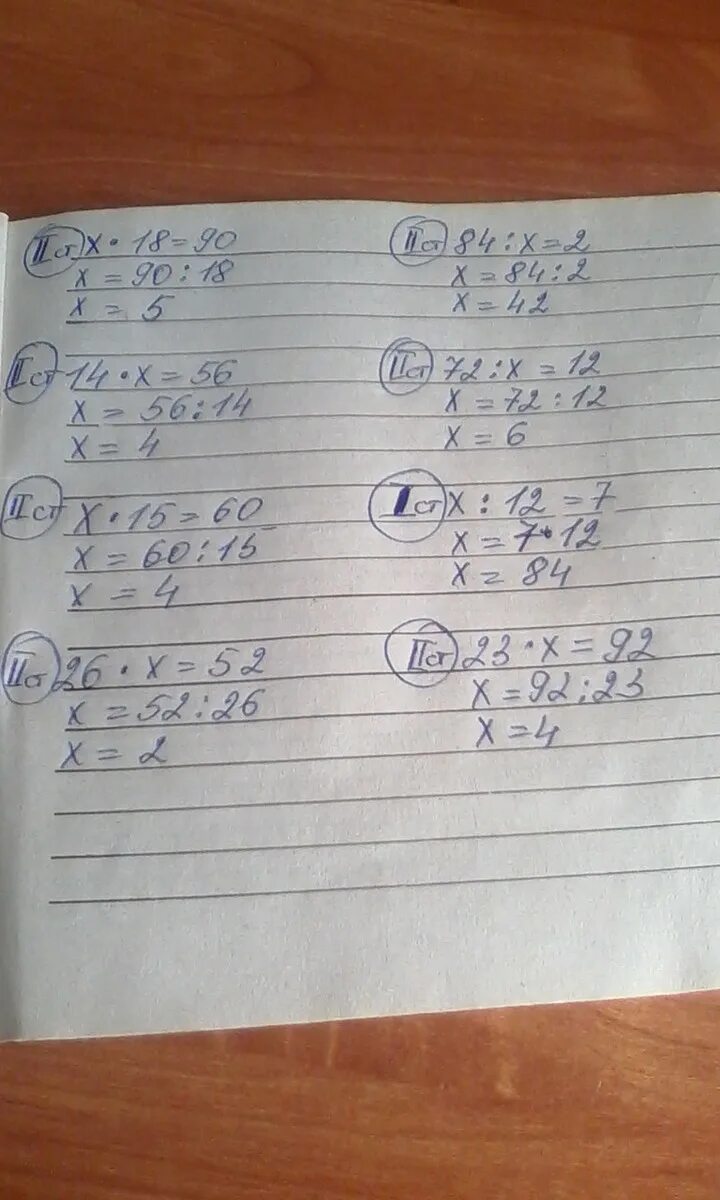 II ст x · 18 = 90
x = 90 : 18
x = 5
I ст 14 · x = 56
x = 56 : 14
x = 4
II ст x · 15 = 60
x = 60 : 15
x = 4
II ст 26 · x = 52
x = 52 : 26
x = 2
II ст 84 : x = 2
x = 84 : 2
x = 42
II ст 72 : x = 12
x = 72 : 12
x = 6
I ст x : 12 = 7
x = 7 · 12
x = 84
II ст 23 · x = 92
x = 92 : 23
x = 4